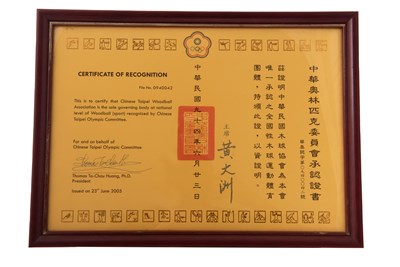 CERTIFICATE OF RECOGNITION
This is to certify that Chinese Taipei Woodball
Association is the sole governing body at national
level of Woodball (sport) recognized by Chinese
Taipei Olympic Committee.
For and on behalf of
Chinese Taipei Olympic Committee
Thomas Ta-Chou Huang, M.D.
President
Issued on 23rd June 2005
中華奧林匹克委員會承認證書
茲證明中華民國木球協會為本會
唯一承認之全國性木球運動體育
團體,特頒此證,以資證明。
主席
黃大洲
中華民國九十四年六月廿三日